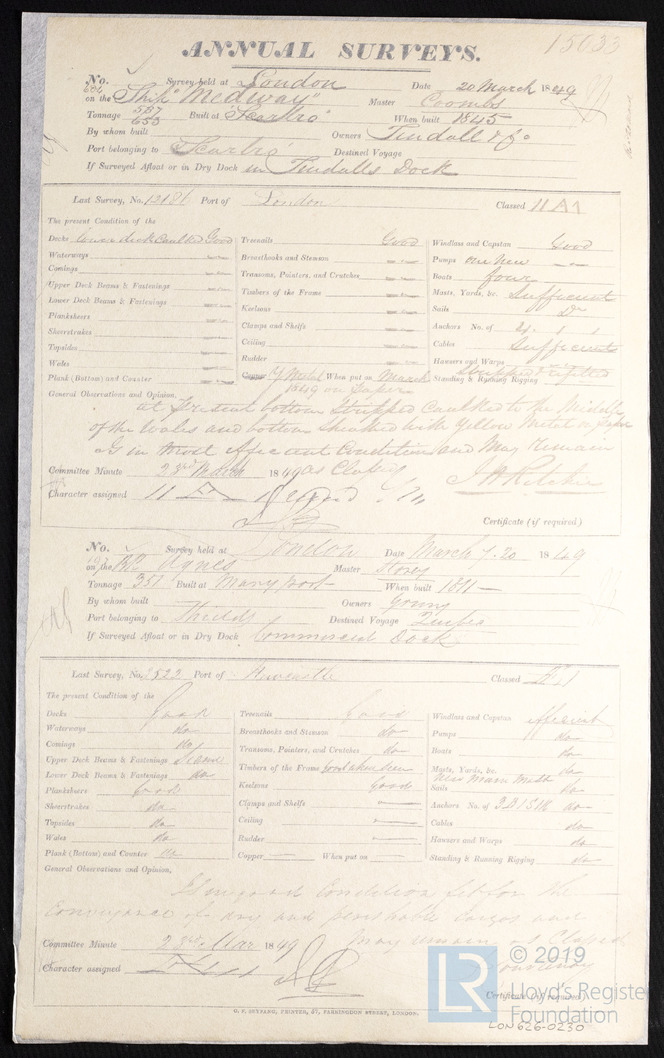 15033
ANNUAL SURVEYS.
No. 604 Survey held at London Date 20 March 1849
on the Ship "Medway" Master Coombs
Tonnage 587 653 Built at Scarbro' When built 1845
By whom built Owners Tindall & Co
Port belonging to Scarbro Destined Voyage
If Surveyed Afloat or in Dry Dock in Tindalls Dock
Last Survey, No. 12181 Port of London Classed 11 A1
The present Condition of the
Decks lower deck caulked Good
Waterways
Comings
Upper Deck Beams & Fastenings
Lower Deck Beams & Fastenings
Planksheers
Sheerstrakes
Topsides
Wales
Plank (Bottom) and Counter
Treenails Good
Breasthooks and Stemson
Transoms, Pointers, and Crutches
Timbers of the Frame
Keelsons
Clamps and Shelfs
Ceiling
Rudder
Copper Y Metal When put on March
1849 on
Windlass and Capstan Good
Pumps one New
Boats four
Masts, Yards, &c. Sufficient
Sails Do
Anchors No. of
Cables Sufficient
Hawsers and Warps
Standing & Running Rigging Stripped & refitted
General Observations and Opinion,
at present bottom stripped caulked to the Middle
of the Wales and bottom sheathed with Yellow Metal on
is in most efficient Condition and May remain
as Classed
Committee Minute 23rd March 1849
J H Ritchie
Character assigned 11 A 1
Certificate (if required)
No. Survey held at London Date March 7. 20 1849
on the Agnes Master Storey
Tonnage 351 Built at Maryport When built 1811
By whom built Owners Young
Port belonging to Shields Destined Voyage Quebec
If Surveyed Afloat or in Dry Dock Commercial Dock
Last Survey, No. 3522 Port of Newcastle Classed
The present Condition of the
Decks Good
Waterways do
Comings do
Upper Deck Beams & Fastenings
Lower Deck Beams & Fastenings do
Planksheers Good
Sheerstrakes do
Topsides do
Wales do
Plank (Bottom) and Counter do
Treenails Good
Breasthooks and Stemson do
Transoms, Pointers, and Crutches do
Timbers of the Frame
Keelsons Good
Clamps and Shelfs
Ceiling
Rudder
Copper When put on
Windlass and Capstan efficient
Pumps do
Boats do
Masts, Yards, &c. do
New Main Mast
Sails do
Anchors No. of do
Cables do
Hawsers and Warps do
Standing & Running Rigging do
General Observations and Opinion,
in good Condition fit for the
Conveyance of dry and perishable Cargos and
may remain as Classed
Committee Minute 23rd Mar 1849
Character assigned
Certificate (if required)
G. F. SEYFANG, PRINTER, 57, FARRINGDON STREET, LONDON.
LR © 2019
Lloyd's Register
Foundation
LON626-0230